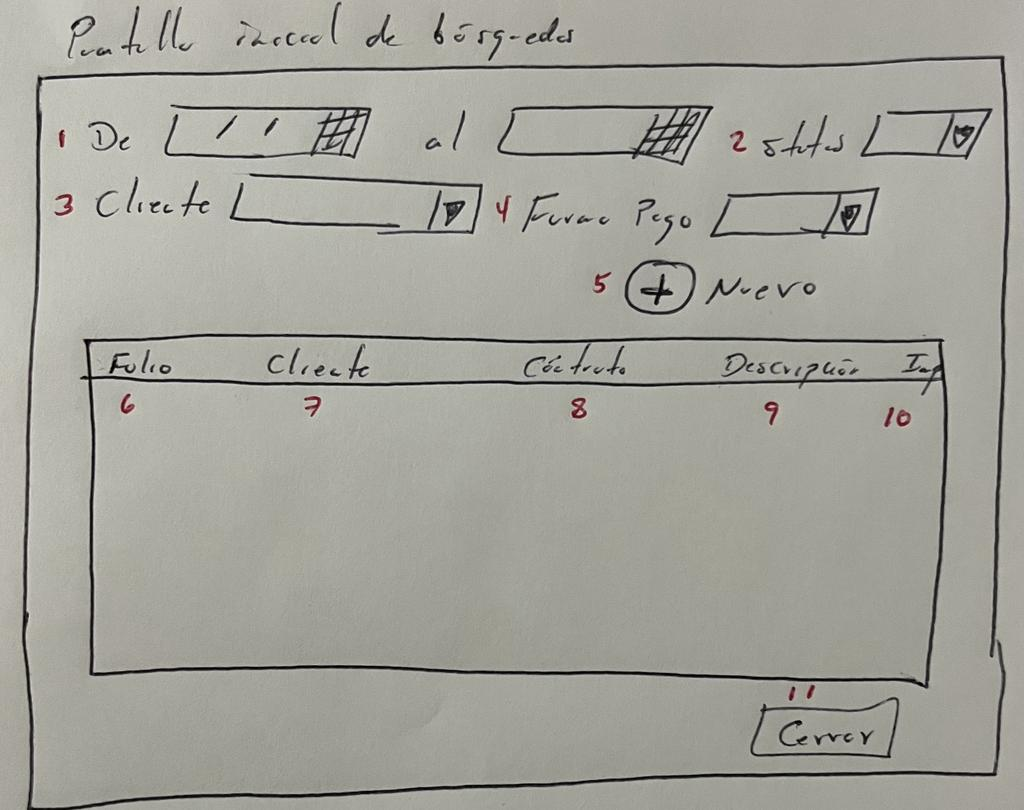 Pantalla inicial de búsquedas
1 De / / al 2 Status
3 Cliente 4 Forma Pago
5 + Nuevo
Folio Cliente Contrato Descripción Imp
6 7 8 9 10
11
Cerrar